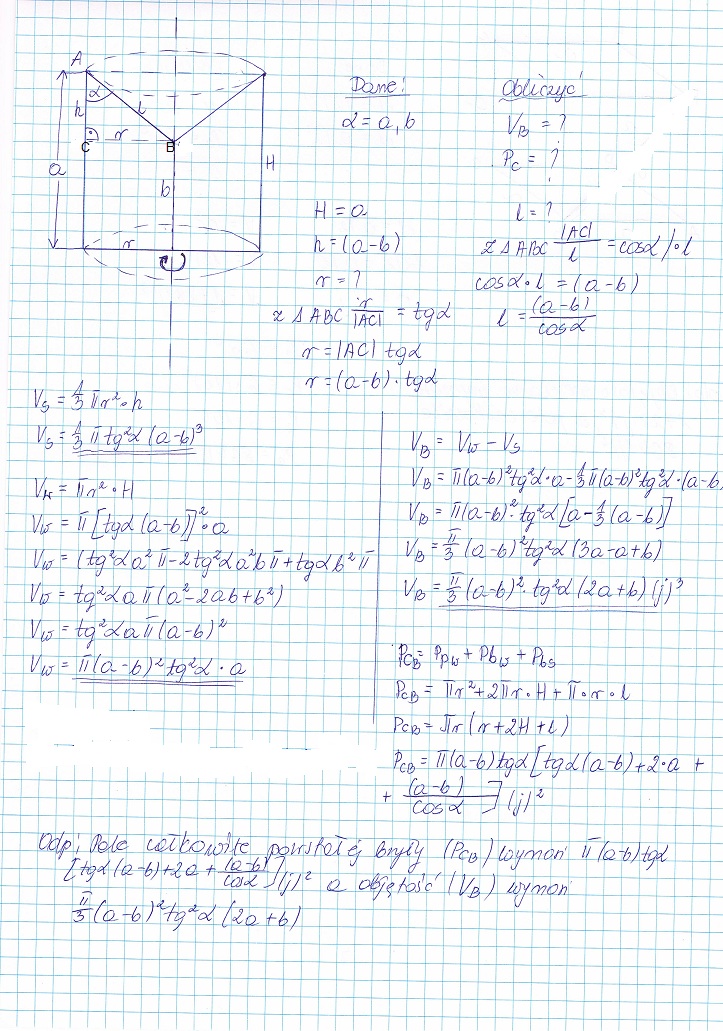 A
α
h
l
r
C
B
a
b
H
r
Dane:
α = a, b
Obliczyć
V_B = ?
P_C = ?
H = a
h = (a-b)
r = ?
z Δ ABC r/|AC| = tgα
r = |AC| tgα
r = (a-b)·tgα
l = ?
z Δ ABC |AC|/l = cosα /·l
cosα·l = (a-b)
l = (a-b)/cosα
V_S = 1/3 πr²·h
V_S = 1/3 π tg²α (a-b)³
V_W = πr²·H
V_W = π[tgα(a-b)]²·a
V_W = (tg²αa²π-2tg²αa²bπ+tgαb²π
V_W = tg²αaπ(a²-2ab+b²)
V_W = tg²αaπ(a-b)²
V_W = π(a-b)²tg²α·a
V_B = V_W - V_S
V_B = π(a-b)²tg²α·a-1/3π(a-b)²tg²α·(a-b
V_B = π(a-b)²·tg²α[a-1/3(a-b)]
V_B = π/3 (a-b)²tg²α(3a-a+b)
V_B = π/3 (a-b)²·tg²α(2a+b)(j)³
P_CB = P_PW + Pb_W + P_bS
P_CB = πr²+2πr·H+π·r·l
P_CB = πr(r+2H+l)
P_CB = π(a-b)tgα[tgα(a-b)+2·a +
+ (a-b)/cosα ](j)²
Odp: Pole całkowite powstałej bryły (P_CB) wynosi π(a-b)tgα
[tgα(a-b)+2a+(a-b)/cosα](j)² a objętość (V_B) wynosi
π/3(a-b)²tg²α(2a+b)